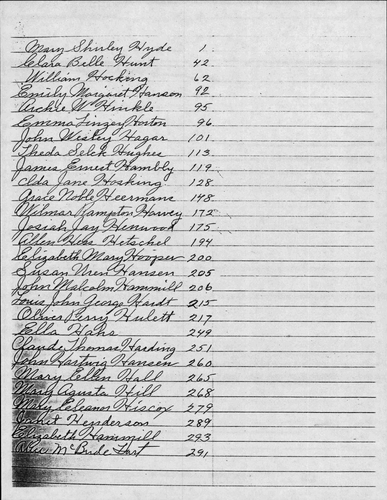 Mary Shirley Hyde 1
Clara Belle Hunt 42
William Hocking 62
Emily Margaret Hanson 92
Archie W Hinkle 95
Emma Finzey Horton 96
John Wesley Hagar 101
Theda Selck Hughes 113
James Ernest Hambly 119
Ada Jane Hosking 128
Grace Noble Heermans 148
Wilmar Hampton Harvey 172
Josiah Jay Henwood 175
Allen Hess Hetschel 194
Elizabeth Mary Hooper 200
Susan Uren Hansen 205
John Malcolm Hammill 206
Louis John George Hardt 215
Oliver Perry Hulett 217
Ella Hahs 249
Claude Thomas Harding 251
John Hartwig Hansen 260
Mary Ellen Hall 265
Mary Agusta Hill 268
Mary Eleanor Hiscox 279
Janet Henderson 289
Elizabeth Hammill 293
Alice McBride Hart 291